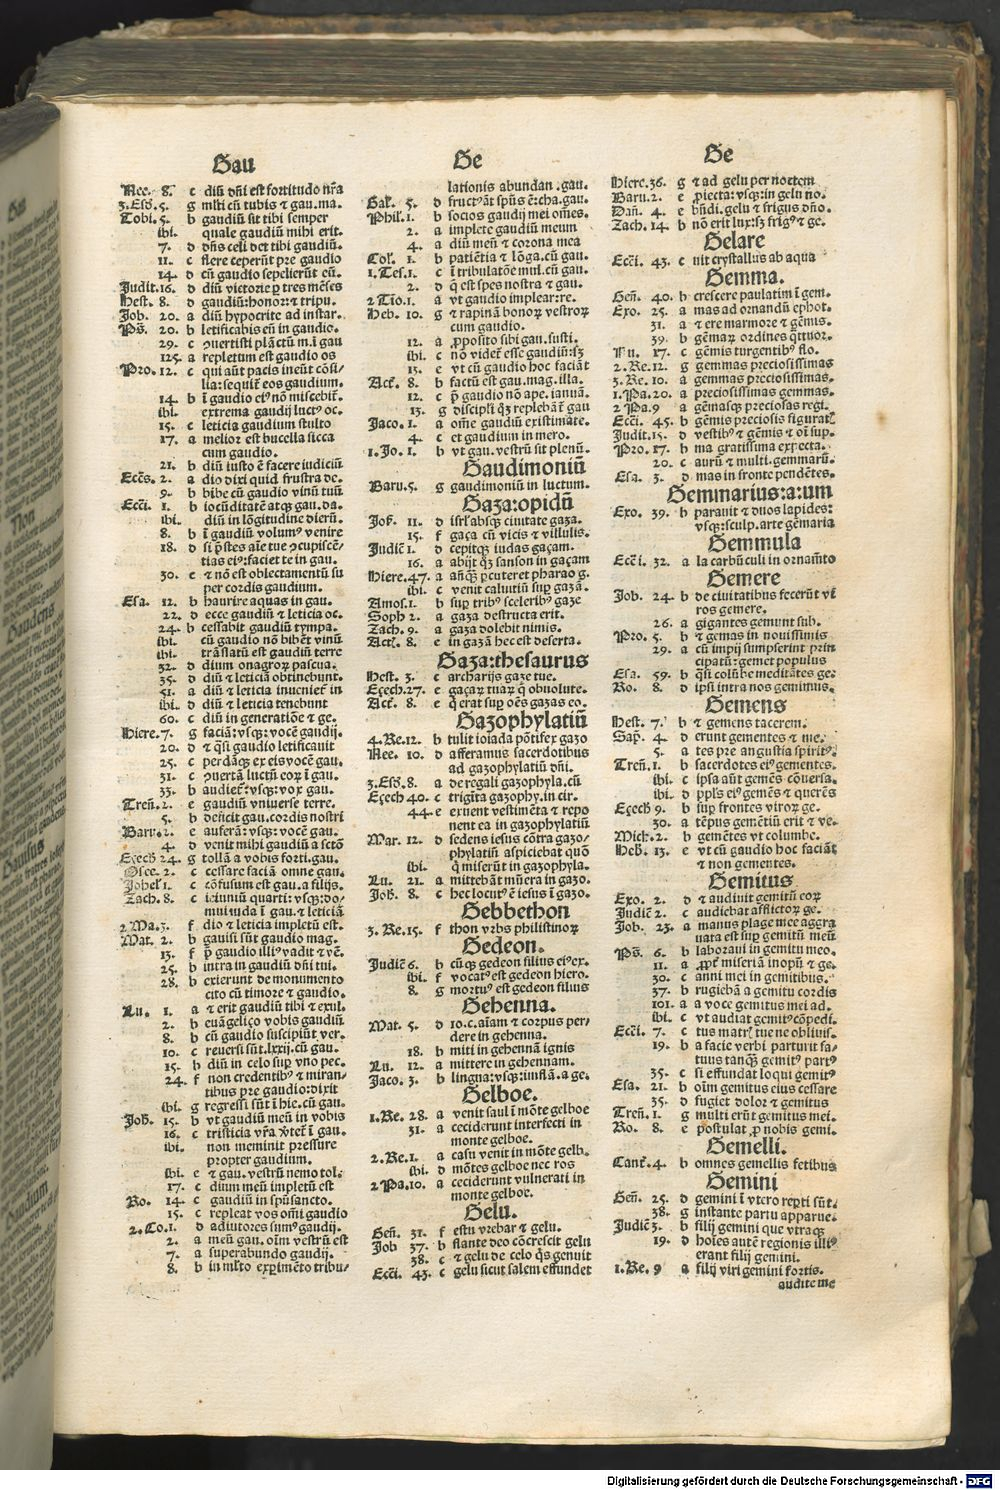 Gau
Nee. 8. c diũ dñi est fortitudo nr̃a
3.Esd̃.5. g mlti cũ tubis ⁊ gau.ma.
Tobi.5. b gaudiũ sit tibi semper
ibi. quale gaudiũ mihi erit.
7. d dñs celi det tibi gaudiũ.
11. c flere ceperũt pre gaudio
14. d cũ gaudio sepelierũt eũ.
Judit.16. d diũ victorie ꝑ tres mẽses
Hest. 8. d gaudiũ:honor:⁊ tripu.
Job. 20. a diũ hypocrite ad instar.
Ps̃. 20. b letificabis eũ in gaudio.
29. c ꝯuertisti plãctũ m.ĩ gau
125. a repletum est gaudio os
Pro.12. c qui aũt pacis ineũt cõsi/
lia:sequit̃ eos gaudium.
14. b ĩ gaudio eiꝰ nõ miscebit̃.
ibi. extrema gaudij luctꝰ oc.
15. c leticia gaudium stulto
17. a melior est bucella sicca
cum gaudio.
21. b diũ iusto ẽ facere iudiciũ
Eccs̃. 2. a dio dixi quid frustra de.
9. b bibe cũ gaudio vinũ tuũ
Ecci̇̃ 1. b iocũditatẽ atqꝫ gau.da.
ibi. diũ in lõgitudine dierũ.
8. b ĩ gaudiũ volumꝰ venire
18. d si p̃stes aĩe tue ꝯcupiscẽ/
tias eiꝰ:faciet te in gau.
30. e ⁊ nõ est oblectamentũ su
per cordis gaudium.
Esa. 12. b haurire aquas in gau.
22. d ecce gaudiũ ⁊ leticia oc.
24. b cessabit gaudiũ tympa.
ibi. cũ gaudio nõ bibẽt vinũ
ibi. trãslatũ est gaudiũ terre
32. d dium onagroꝝ pascua.
35. d diũ ⁊ leticiã obtinebunt.
51. a diũ ⁊ leticia inueniet̃ in
ibi. d diũ ⁊ leticia tenebunt
60. c diũ in generatiõe ⁊ ge.
Hiere.7. g faciã:vsqꝫ:vocẽ gaudij.
20. d ⁊ q̃si gaudio letificauit
25. c perdãqꝫ ex eis vocẽ gau.
31. c ꝯuertã luctũ eoꝝ ĩ gau.
33. b audiet̃:vsqꝫ:vox gau.
Treñ.2. e gaudiũ vniuerse terre.
5. b deficit gau.cordis nostri
Baru.2. e auferã:vsqꝫ:vocẽ gau.
4. d venit mihi gaudiũ a sctõ
Eçech̃ 24. g tollã a vobis forti.gau.
Osee. 2. c cessare faciã omne gau.
Johel̃ 1. c cõfusum est gau.a filijs.
Zach. 8. c ieiuniũ quarti:vsqꝫ:do/
mui iuda ĩ gau.⁊ leticiã
2 Ma.3. f dio ⁊ leticia impletũ est.
Mat. 2. b gauisi sũt gaudio mag.
13. f p̃ gaudio illiꝰ vadit ⁊ vẽ.
25. b intra in gaudiũ dñi tui.
28. b exierunt de monumento
cito cũ timore ⁊ gaudio.
Lu. 1. a ⁊ erit gaudiũ tibi ⁊ exul.
2. b euãgelico vobis gaudiũ
8. b cũ gaudio suscipiũt ver.
10. c reuersi sũt.lxxij.cũ gau.
15. b diũ in celo suꝑ vno pec.
24. f non credentibꝰ ⁊ miran/
tibus pre gaudio:dixit
ibi. g regressi sũt ĩ hie.cũ gau.
Joh̃. 15. b vt gaudiũ meũ in vobis
16. c tristicia vr̃a v̓tet̃ ĩ gau.
ibi. non meminit pressure
propter gaudium.
ibi. e ⁊ gau.vestrũ nemo tol.
17. c dium meũ impletũ est
Ro. 14. c gaudiũ in spũsancto.
15. c repleat vos om̃i gaudio
2.Co.1. d adiutores sumꝰ gaudij.
2. a meũ gau.oĩm vestrũ est
7. a superabundo gaudij.
8. b in ml̃to exꝑimẽto tribu/
Ge
lationis abundan.gau.
Gal̃. 5. d fructꝰ aũt spũs ẽ:cha.gau.
Phil̃.1. b socios gaudij mei om̃es.
2. a implete gaudiũ meum
4. a diũ meũ ⁊ corona mea
Col̃. 1. b patiẽtia ⁊ lõga.cũ gau.
1.Tes̃.1. c ĩ tribulatõe mul.cũ gau.
2. d q̃ est spes nostra ⁊ gau.
2 Tiõ.1. a vt gaudio implear:re.
Heb. 10. g ⁊ rapinã bonoꝝ vestroꝝ
cum gaudio.
12. a ꝓposito sibi gau.susti.
ibi. c nõ videt̃ esse gaudiũ:sꝫ
13. e vt cũ gaudio hoc faciãt
Act̃. 8. b factũ est gau.mag.illa.
12. c p̃ gaudio nõ ape.ianuã.
13. g discipl̃i qꝫ replebãt̃ gau
Jaco.1. a om̃e gaudiũ existimate.
4. c et gaudium in mero.
1.Jo.1. b vt gau.vestrũ sit plenũ.
Gaudimoniũ
Baru.5. g gaudimoniũ in luctum.
Gaza:opidũ
Joß. 11. d isrl̃ absqꝫ ciuitate gaza.
15. f gaça cũ vicis ⁊ villulis.
Judic̃ 1. d cepitqꝫ iudas gaçam.
16. a abijt qꝫ sanson in gaçam
Hiere.47. a añqꝫ ꝑcuteret pharao g.
ibi. c venit caluitiũ suꝑ gazã.
Amos.1. b suꝑ tribꝰ sceleribꝰ gaze
Soph 2. a gaza destructa erit.
Zach. 9. a gaza dolebit nimis.
Act̃. 8. e in gazã hec est deserta.
Gaza:thesaurus
Hest. 3. c archarijs gaze tue.
Eçech.27. e gaçaꝝ tuaꝝ q̃ obuolute.
Act̃. 8. e q̃ erat suꝑ oẽs gazas eo.
Gazophylatiũ
4.Re.12. b tulit ioiada põtifex gazo
Nee. 10. d afferamus sacerdotibus
ad gazophylatiũ dñi.
3.Esd̃.8. a de regali gazophyla.cũ
Eçech 40. c trigĩta gazophy.in cir.
44. e exuent vestimẽta ⁊ repo
nent ea in gazophylatiũ
Mar. 12. d sedens iesus cõtra gazo/
phylatiũ aspiciebat quõ
ibi. q̃ miserũt in gazophyla.
Lu. 21. a mittebãt mũera in gazo.
Joh̃. 8. c hec locutꝰ ẽ iesus ĩ gazo.
Gebbethon
3. Re.15. f thon vrbs philistinoꝝ
Gedeon.
Judic̃ 6. b cũqꝫ gedeon filius eiꝰ ex.
ibi. f vocatꝰ est gedeon hiero.
8. g mortuꝰ est gedeon filius
Gehenna.
Mat. 5. d io.c.aĩam ⁊ corpus per/
dere in gehenna.
18. b miti in gehennã ignis
Lu. 12. a mittere in gehennam.
Jaco. 3. b lingua:vsqꝫ:inflã.a ge.
Gelboe.
1.Re. 28. a venit saul ĩ mõte gelboe
31. a ceciderunt interfecti in
monte gelboe.
2.Re.1. a casu venit in mõte gelb.
ibi. d mõtes gelboe nec ros
2 Pa.10. a ceciderunt vulnerati in
monte gelboe.
Gelu.
Geñ. 31. f estu vrebar ⁊ gelu.
Job 37. b flante deo cõcrescit gelu
38. c ⁊ gelu de celo q̃s genuit
Ecci̇̃. 43. c gelu sicut salem effundet
Ge
Hiere.36. g ⁊ ad gelu per noctem
Baru.2. e ꝓiecta:vsqꝫ:in gelu no.
Dañ. 4. e bñdi.gelu ⁊ frigus dño.
Zach. 14. b nõ erit lux:sꝫ frigꝰ ⁊ ge.
Gelare
Ecci̇̃. 43. c uit crystallus ab aqua
Gemma.
Geñ. 40. b crescere paulatim ĩ gem.
Exo. 25. a mas ad ornandũ ephot.
31. a ⁊ ere marmore ⁊ gẽmis.
39. b gẽmaꝝ ordines q̃ttuor.
Nu. 17. c gẽmis turgentibꝰ flo.
2.Re.12. g gemmas preciosissimas
3.Re.10. a gemmas preciosissimas.
1.Pa.20. a preciosissimas gemmas.
2 Pa.9 a gẽmasqꝫ preciosas regi.
Ecci̇̃. 45. b gẽmis preciosis figurat̃
Judit.15. d vestibꝰ ⁊ gẽmis ⁊ oĩ sup.
Pro. 17. b ma gratissima expecta.
20. c aurũ ⁊ multi.gemmarũ.
Esa. 3. d mas in fronte pendẽtes.
Gemmarius:a:um
Exo. 39. b parauit ⁊ duos lapides:
vsqꝫ:sculp.arte gẽmaria
Gemmula
Ecci̇̃. 32. a la carbũculi in ornam̃to
Gemere
Job. 24. b de ciuitatibus fecerũt vi
ros gemere.
26. a gigantes gemunt sub.
Pro. 5. b ⁊ gemas in nouissimis
29. a cũ impij sumpserint prin
cipatũ:gemet populus
Esa. 59. b q̃si colũbe meditãtes ge.
Ro. 8. d ipsi intra nos gemimus.
Gemens
Hest. 7. b ⁊ gemens tacerem.
Sap̃. 4. d erunt gementes ⁊ me.
5. a tes pre angustia spiritꝰ.
Treñ.1. b sacerdotes eiꝰ gementes.
ibi. c ipsa aũt gemẽs cõuersa.
ibi. d ppl̃s eiꝰ gemẽs ⁊ querẽs
Eçech̃ 9. b suꝑ frontes viroꝝ ge.
30. a tẽpus gemẽtiũ erit ⁊ ve.
Mich.2. b gemẽtes vt columbe.
Heb̃. 13. e vt cũ gaudio hoc faciãt
⁊ non gementes.
Gemitus
Exo. 2. d ⁊ audiuit gemitũ eoꝝ
Judic̃ 2. c audiebat afflictoꝝ ge.
Job. 23. a manus plage mee aggra
uata est suꝑ gemitũ meũ
Ps̃. 6. b laboraui in gemitu meo.
11. a ꝓpt̃ miseriã inopũ ⁊ ge.
30. c anni mei in gemitibus.
37. b rugiebã a gemitu cordis
101. a a voce gemitus mei ad.
ibi. c vt audiat gemitꝰ cõpedi.
Ecci̇̃. 7. c tus matr̃ tue ne obliuis.
19. b a facie verbi parturit fa/
tuus tanqꝫ̃ gemitꝰ partꝰ
35. c si effundat loqui gemitꝰ
Esa. 21. b oĩm gemitus eius cessare
35. d fugiet dolor ⁊ gemitus
Treñ.1. g multi erũt gemitus mei.
Ro. 8. e postulat ꝓ nobis gemi.
Gemelli.
Cant̃.4. b omnes gemellis fetibus
Gemini
Geñ. 25. d gemini ĩ vtero reꝑti sũt.
38. g instante partu apparue.
Judic̃ 3. b filij gemini que vtraqꝫ
19. d holes autẽ regionis illiꝰ
erant filij gemini.
1.Re.9 a filij viri gemini fortis.
audite me
Digitalisierung gefördert durch die Deutsche Forschungsgemeinschaft - DFG